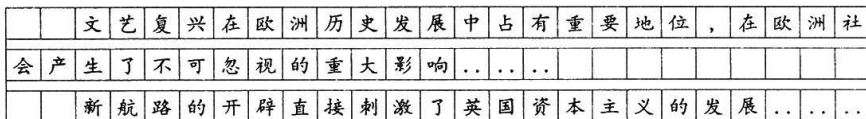 文艺复兴在欧洲历史发展中占有重要地位，在欧洲社
会产生了不可忽视的重大影响......
新航路的开辟直接刺激了英国资本主义的发展......